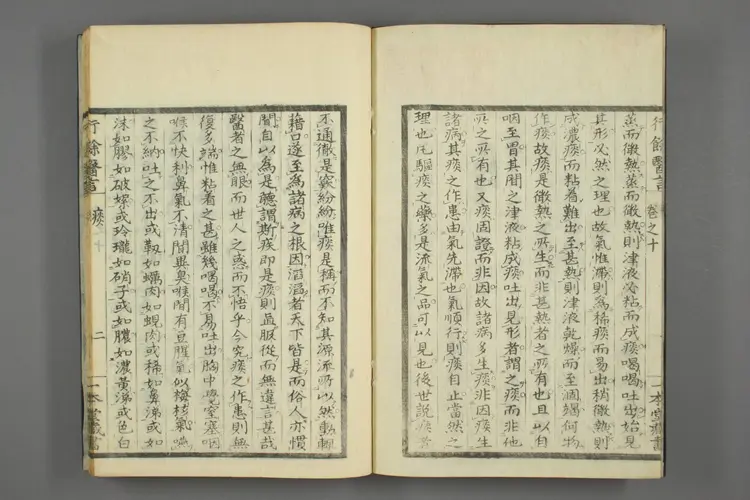 行餘醫言 卷之十 一本堂藏書
蒸而微熱蒸而微熱則津液必粘而成痰喝喝吐出始見
其形必然之理也故氣惟滯則爲稀痰而易出稍微熱則
成濃痰而粘着難出至甚熱則津液乾燥而至涸竭何物
作痰故痰是微熱之所生而非甚熱者之所有也且以自
咽至胃其間之津液粘成痰吐出見形者謂之痰而非他
所之所有也又痰固證而非因故諸病多生痰非因痰生
諸病其痰之作患由氣先滯也氣順行則痰自止當然之
理也凡驅痰之藥多是流氣之品可以見也後世説痰
不通徹是紛紛唯痰是稱而不知其源流所以然動輒
藉口遂至爲諸病之根因滔滔者天下皆是而俗人亦慣
聞自以爲是聽謂斯疾即是痰則區服從而無違言甚哉
醫者之無眼而世人之惑而不悟乎今究痰之作患則無
復多端惟粘着之甚雖幾喝喝不易吐出胸中覺窒塞咽
喉不快利鼻氣不清聞異臭喉間有豆腥氣似梅核氣嚥
之不納吐之不出或靭如蠣肉如蜆肉或稀如鼻涕或如
沫如膠如破絮或玲瓏如硝子或如膿如濃黃涕或色白
行餘醫言 痰 二 一本堂藏書